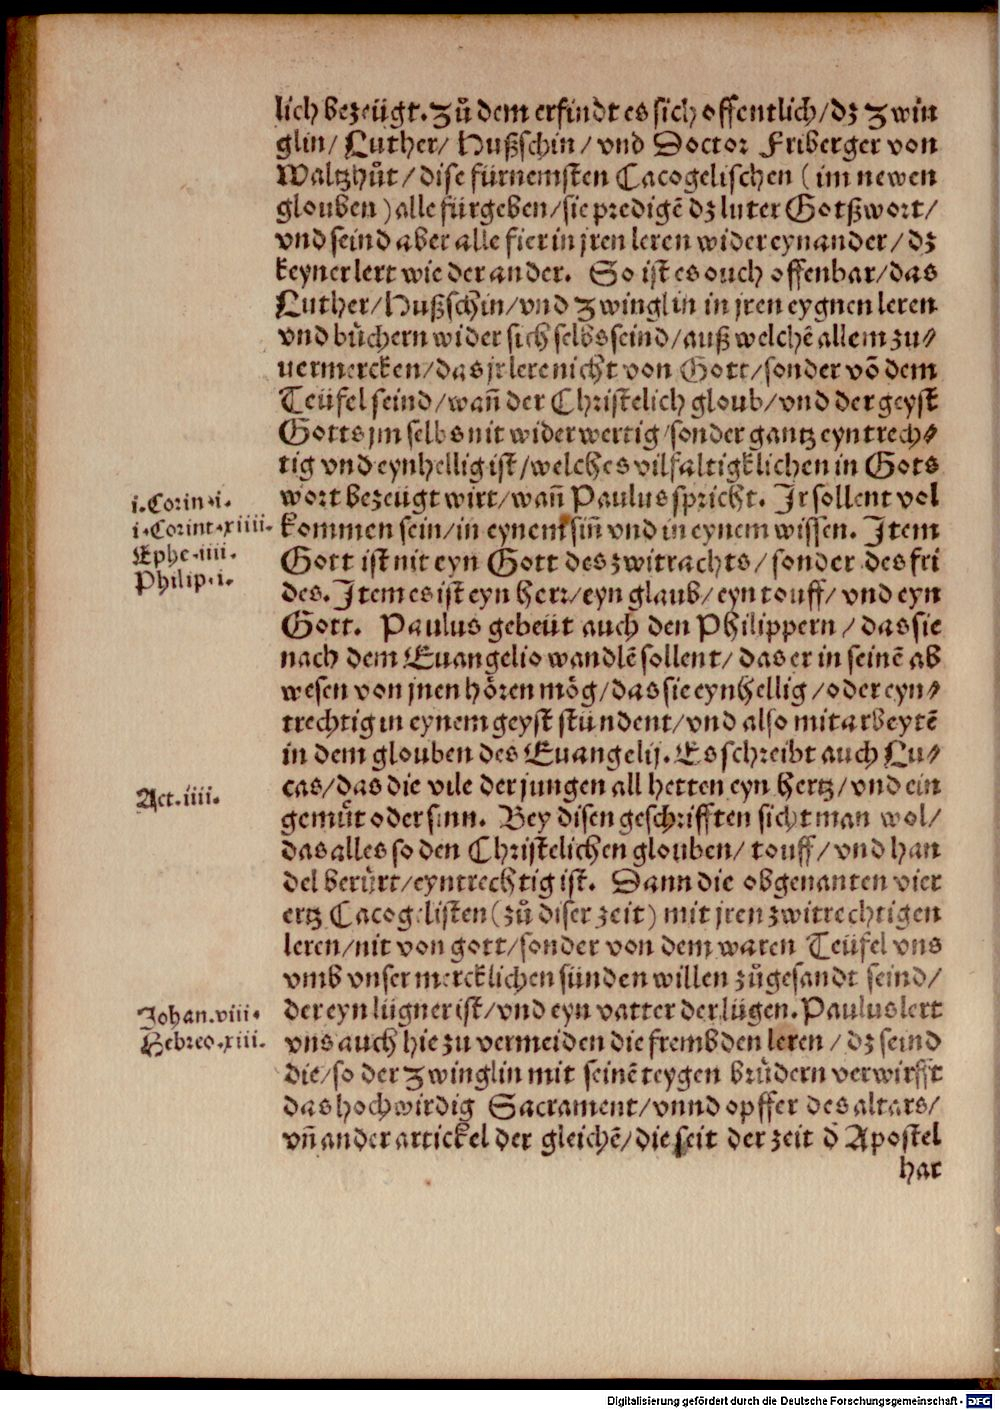 lich bezeügt. Zů dem erfindt es sich offentlich/dz Zwin
glin/ Luther/ Hußschin/ vnd Doctor Friberger von
Waltzhůt/ dise fürnemsten Cacogelischen (im newen
glouben) alle fürgeben/sie predigē dz luter Gotßwort/
vnd seind aber alle fier in jren leren wider eynander/ dz
keyner lert wie der ander. So ist es ouch offenbar/das
Luther/Hußschin/vnd Zwinglin in jren eygnen leren
vnd bůchern wider sich selbs seind/auß welchē allem zu⸗
uermercken/das jr lere nicht von Gott/sonder vō dem
Teüfel seind/wañ der Christelich gloub/vnd der geyst
Gotts jm selbs nit widerwertig/sonder gantz eyntrech⸗
tig vnd eynhellig ist/welches vilfaltigklichen in Gots
i.Corin.i.
wort bezeügt wirt/wañ Paulus spricht. Jr sollent vol
i.Corint.xiiii.
kommen sein/in eynem siñ vnd in eynem wissen. Item
Ephe.iiii.
Gott ist nit eyn Gott des zwitrachts/ sonder des fri
Philip.i.
des. Item es ist eyn herr/eyn glaub/eyn touff/ vnd eyn
Gott. Paulus gebeüt auch den Philippern/ das sie
nach dem Euangelio wandlē sollent/ das er in seinē ab
wesen von jnen hören mög/das sie eynhellig/oder eyn⸗
trechtig in eynem geyst stündent/vnd also mitarbeytē
in dem glouben des Euangelij. Es schreibt auch Lu⸗
Act.iiii.
cas/das die vile der jungen all hetten eyn hertz/vnd ein
gemůt oder sinn. Bey disen geschrifften sicht man wol/
das alles so den Christelichen glouben/ touff/ vnd han
del berůrt/eyntrechtig ist. Dann die obgenanten vier
ertz Cacogelisten (zů diser zeit) mit jren zwitrechtigen
leren/nit von gott/sonder von dem waren Teüfel vns
vmb vnser mercklichen sünden willen zůgesandt seind/
Johan.viii.
der eyn lügner ist/vnd eyn vatter der lügen. Paulus lert
Hebreo.xiii.
vns auch hie zu vermeiden die frembden leren/ dz seind
die/so der Zwinglin mit seinē teygen brůdern verwirfft
das hochwirdig Sacrament/vnnd opffer des altars/
vñ ander artickel der gleichē/die seit der zeit ď Apostel
har
Digitalisierung gefördert durch die Deutsche Forschungsgemeinschaft - DFG